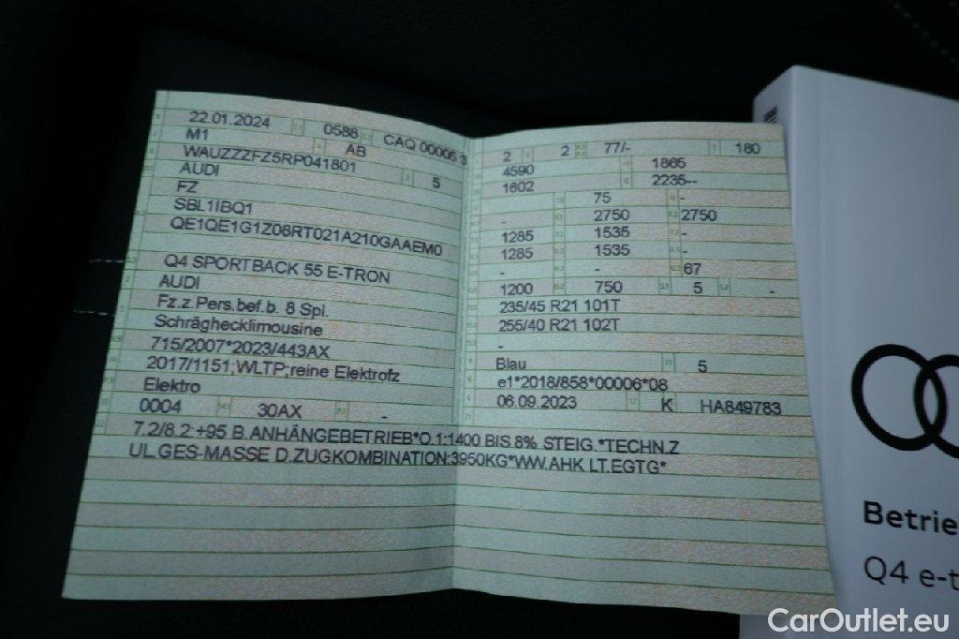 22.01.2024 0588 CAQ 00005 3
M1 AB
WAUZZZFZ5RP041801 5
AUDI
FZ
SBL1IBQ1
QE1QE1G1Z08RT021A210GAAEM0
Q4 SPORTBACK 55 E-TRON
AUDI
Fz.z.Pers.bef.b. 8 Spl.
Schräghecklimousine
715/2007*2023/443AX
2017/1151;WLTP;reine Elektrofz
Elektro
0004 30AX -
2 2 77/- 180
4590 1865
1602 2235--
75 -
- 2750 2750
1285 1535 -
1285 1535 -
- - 67
1200 750 5 -
235/45 R21 101T
255/40 R21 102T
-
Blau 5
e1*2018/858*00006*08
06.09.2023 K HA849783
7.2/8.2:+95 B.ANHÄNGEBETRIEB*O.1:1400 BIS.8% STEIG.*TECHN.Z
UL.GES-MASSE D.ZUGKOMBINATION:3950KG*WW.AHK LT.EGTG*
Betrie
Q4 e-t
CarOutlet.eu